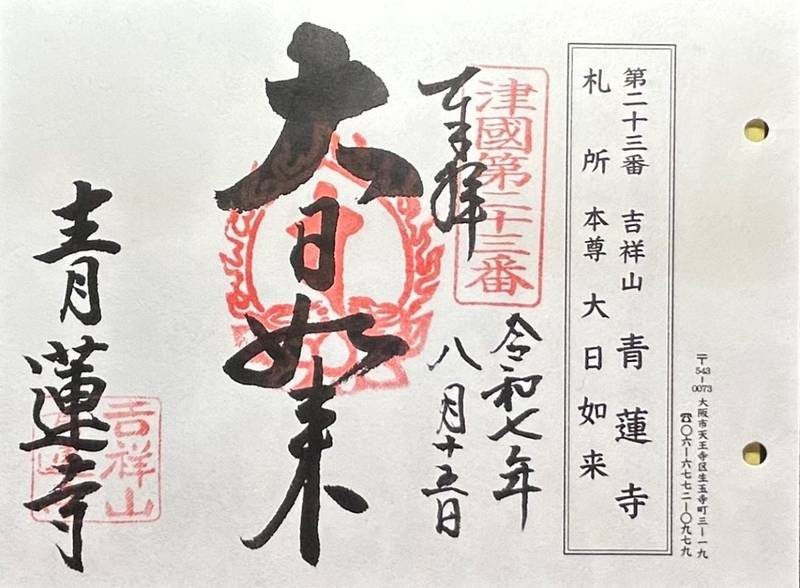 〒543-0073 大阪市天王寺区生玉寺町三ー一九
☎〇六ー六七七二ー〇九七九
第二十三番 吉祥山 青蓮寺
札所本尊 大日如来
津國第二十三番
奉拝
令和七年
八月十五日
大日如来
青蓮寺
吉祥山